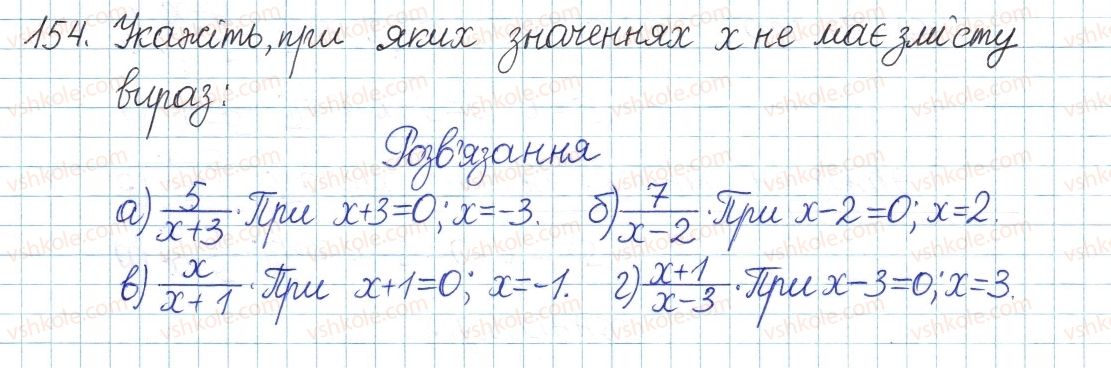 154. Укажіть, при яких значеннях x не має змісту
вираз:
Розв'язання
а) 5/(x+3). При x+3=0; x=-3. б) 7/(x-2). При x-2=0; x=2.
в) x/(x+1). При x+1=0; x=-1. г) (x+1)/(x-3). При x-3=0; x=3.